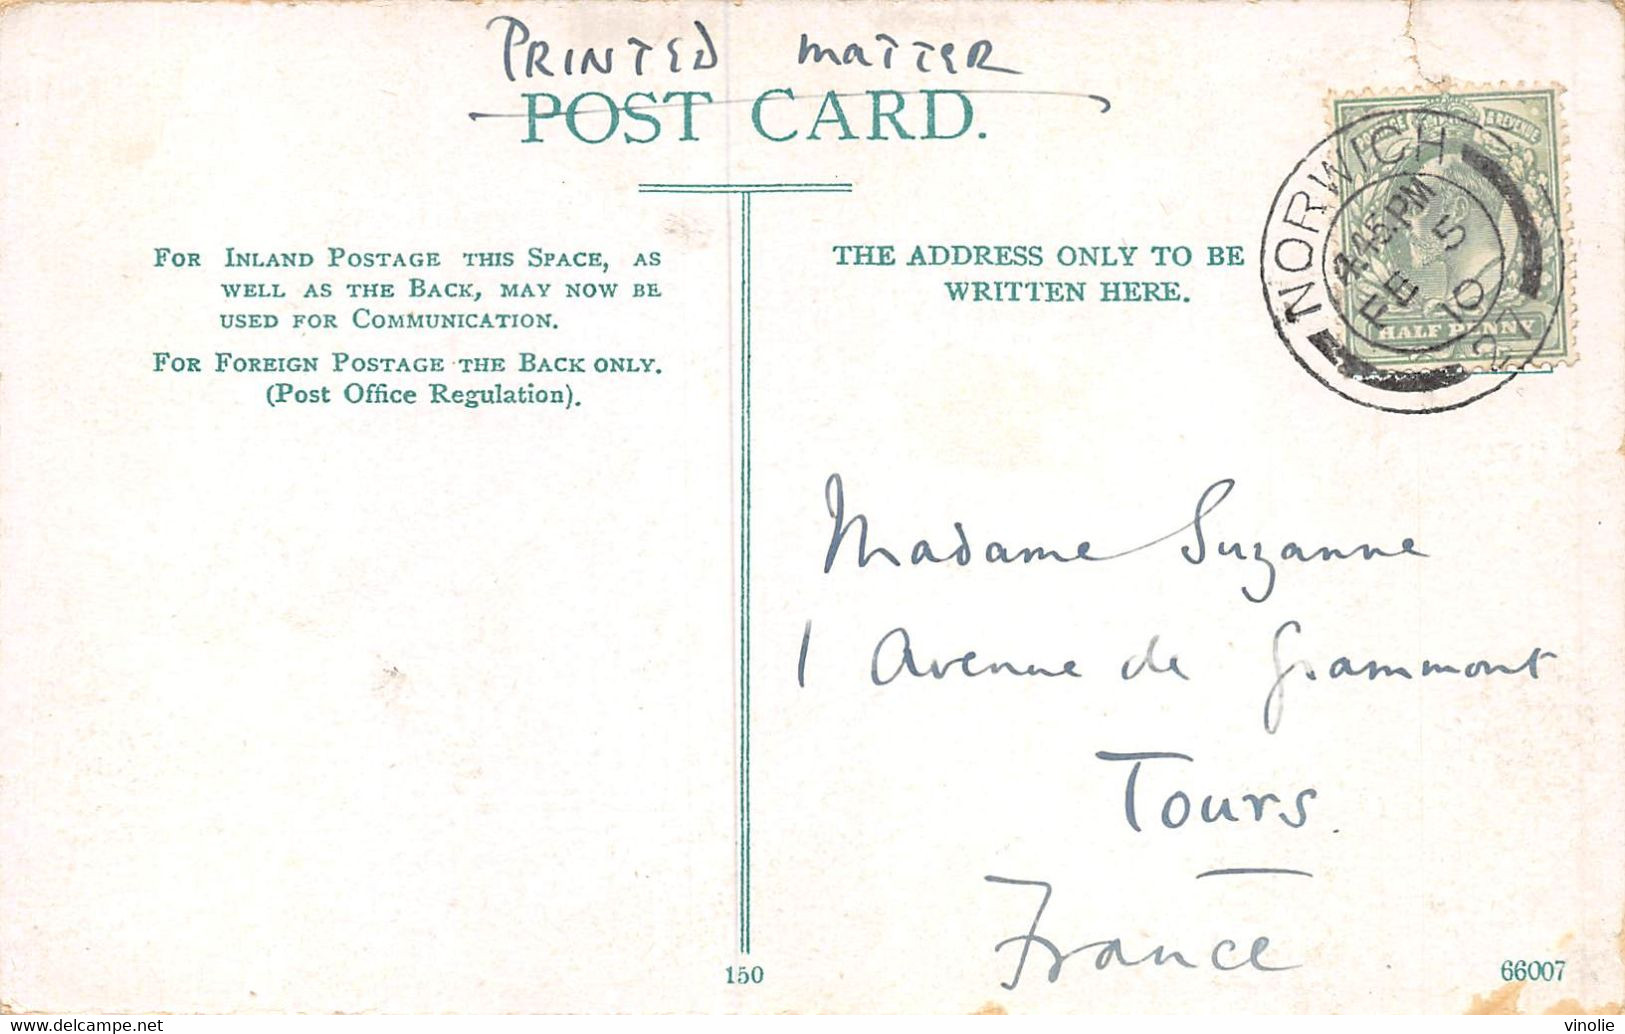 PRINTED matter
POST CARD.
FOR INLAND POSTAGE THIS SPACE, AS
WELL AS THE BACK, MAY NOW BE
USED FOR COMMUNICATION.
FOR FOREIGN POSTAGE THE BACK ONLY.
(Post Office Regulation).
THE ADDRESS ONLY TO BE
WRITTEN HERE.
NORWICH
45 PM
FE 5
10
HALF PENNY
Madame Suzanne
1 Avenue de Grammont
Tours.
France
150
66007
delcampe.net
vinolie